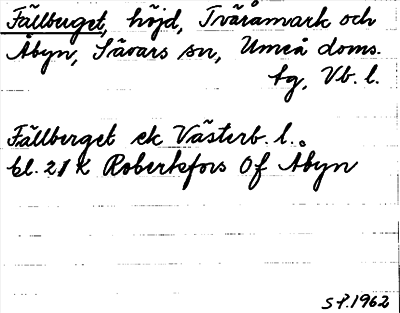 Fällberget, höjd, Tväråmark och
Åbyn, Sävars sn, Umeå doms.
tg, Vb. l.
Fällberget ek Västerb. l.
bl. 21 K Robertsfors 0f Åbyn
S.P. 1962